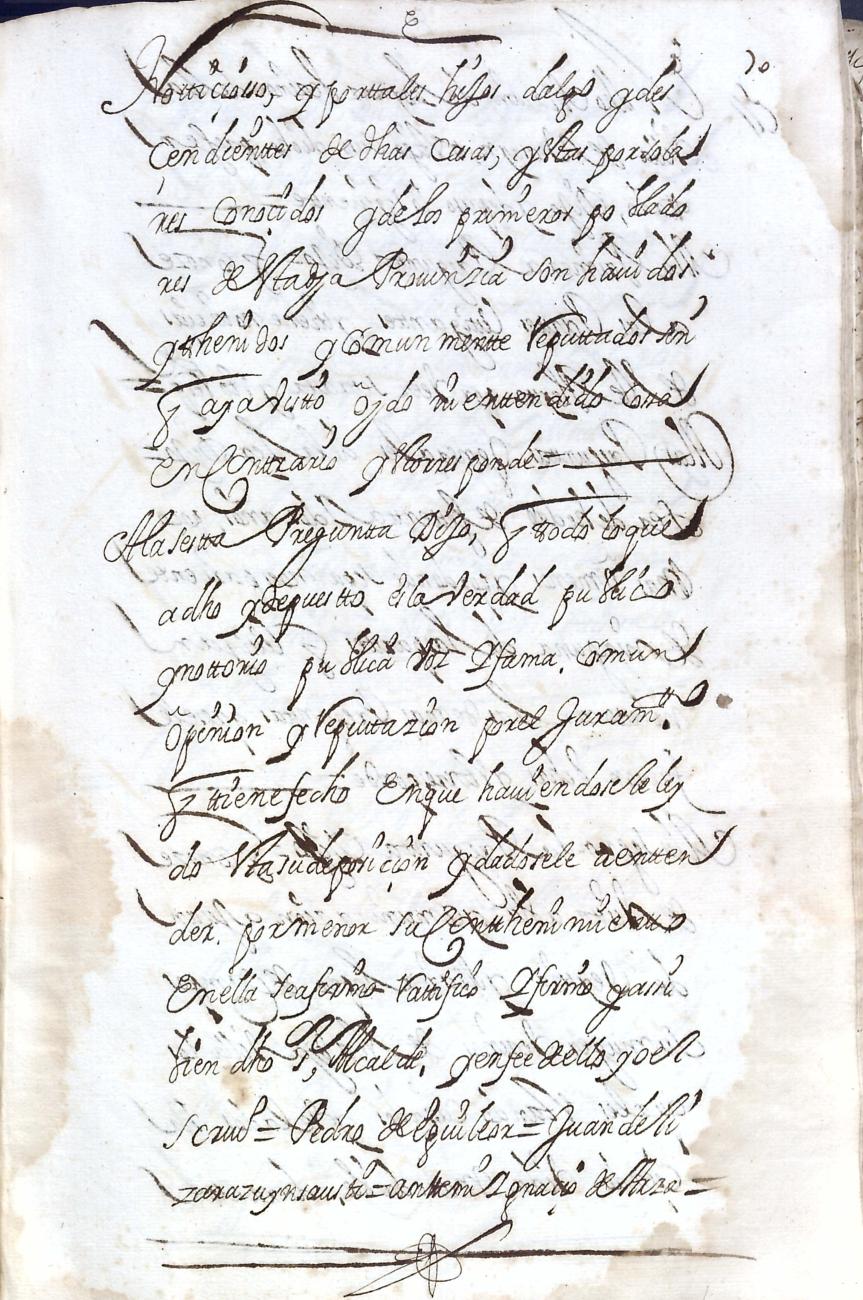 70
Notiçiosso, y porttales hijos dalgo y des
cendienttes de dhas Casas, y estas por sola
res Conocidos y de los primeros poblado
res de esta dha Provinzia son havidos
y thenidos y Comunmentte Reputtados sin
q aya visto oydo ni enttendido cosa
en Conttrario y esto rresponde =
A la sestta Pregunta Dijo, q todo lo que
a dho y depuestto es la verdad publico
y nottorio publica voz y fama. Comun
opinion y Reputtazion por el Juram.to
q ttiene fecho en que haviendosele ley
do esta su deposiçion y dadosele a entten
der. por menor su Conthenimientto
en ella se afirmo Rattifico y firmo y assi
bien dho S.r Alcalde. y en fee de ello yo el
scriv.o = Pedro de Eguileor = Juan de li
zarazu y nsausti = Antte mi Ygnaçio de Arza =